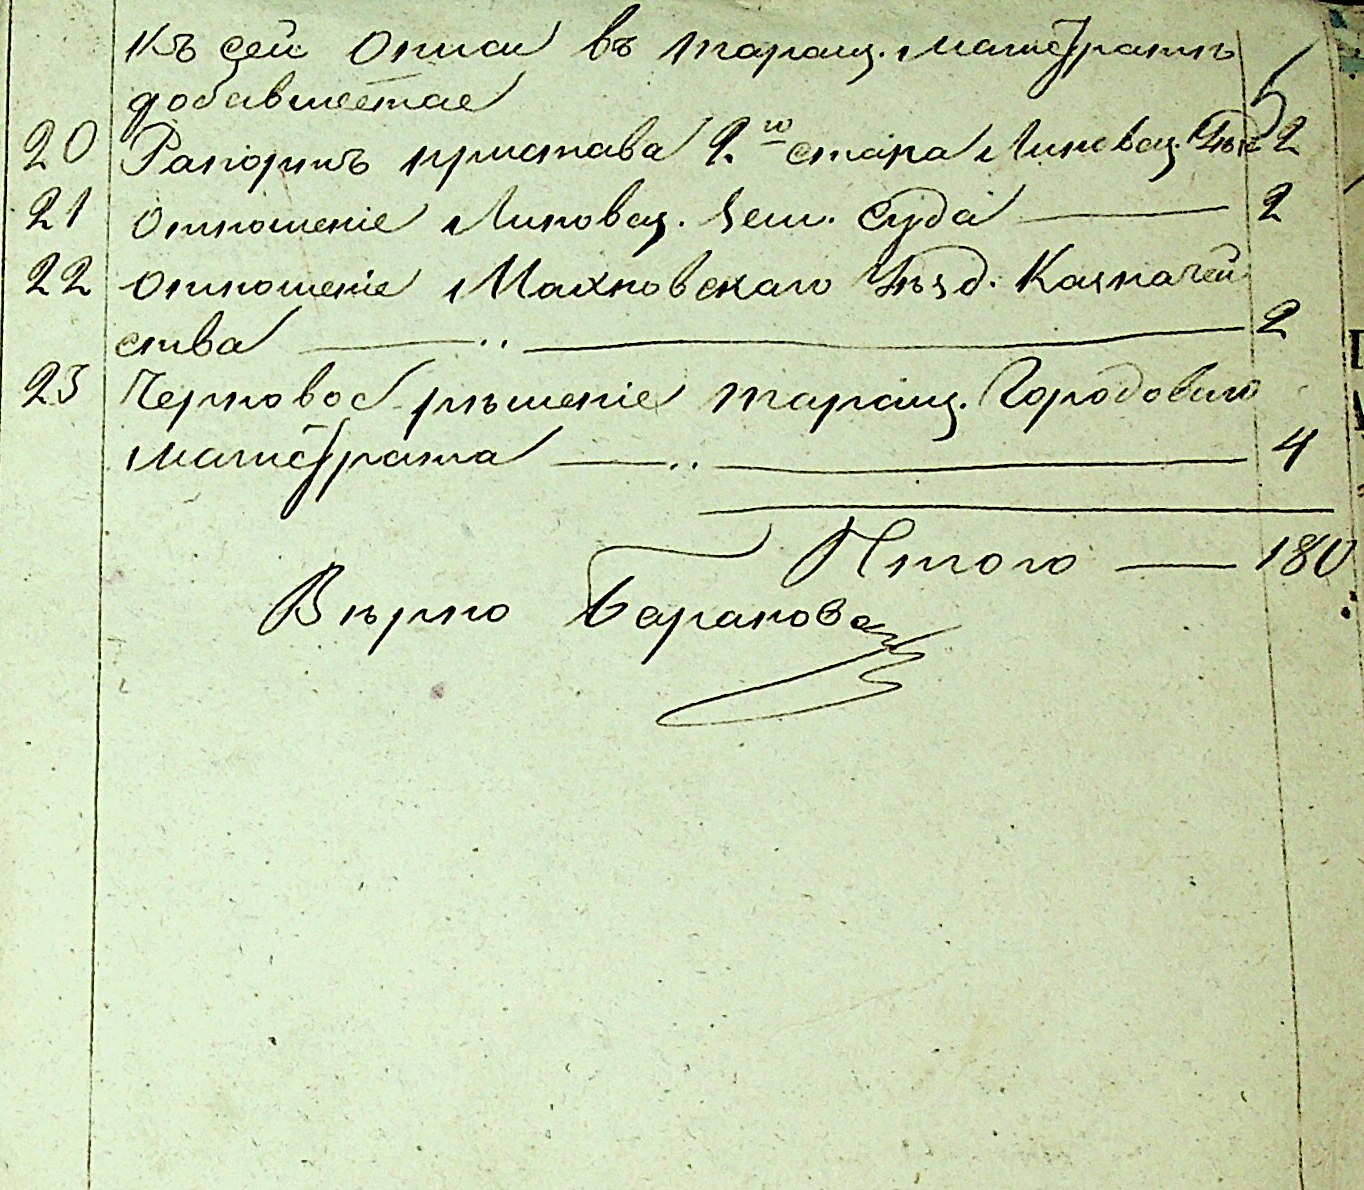 Къ сей описи въ таращ. магистратѣ
добавметае
20 Рапортъ пристава 2.го стана Липовец. Уѣз 2
21 Отношеніе Липовец. Зем. Суда 2
22 Отношеніе Махновскаго Уѣзд. Казначей
ства 2
23 Черновое рѣшеніе таращ. Городоваго
магистрата 4
Итого — 180
Вѣрно Баранова